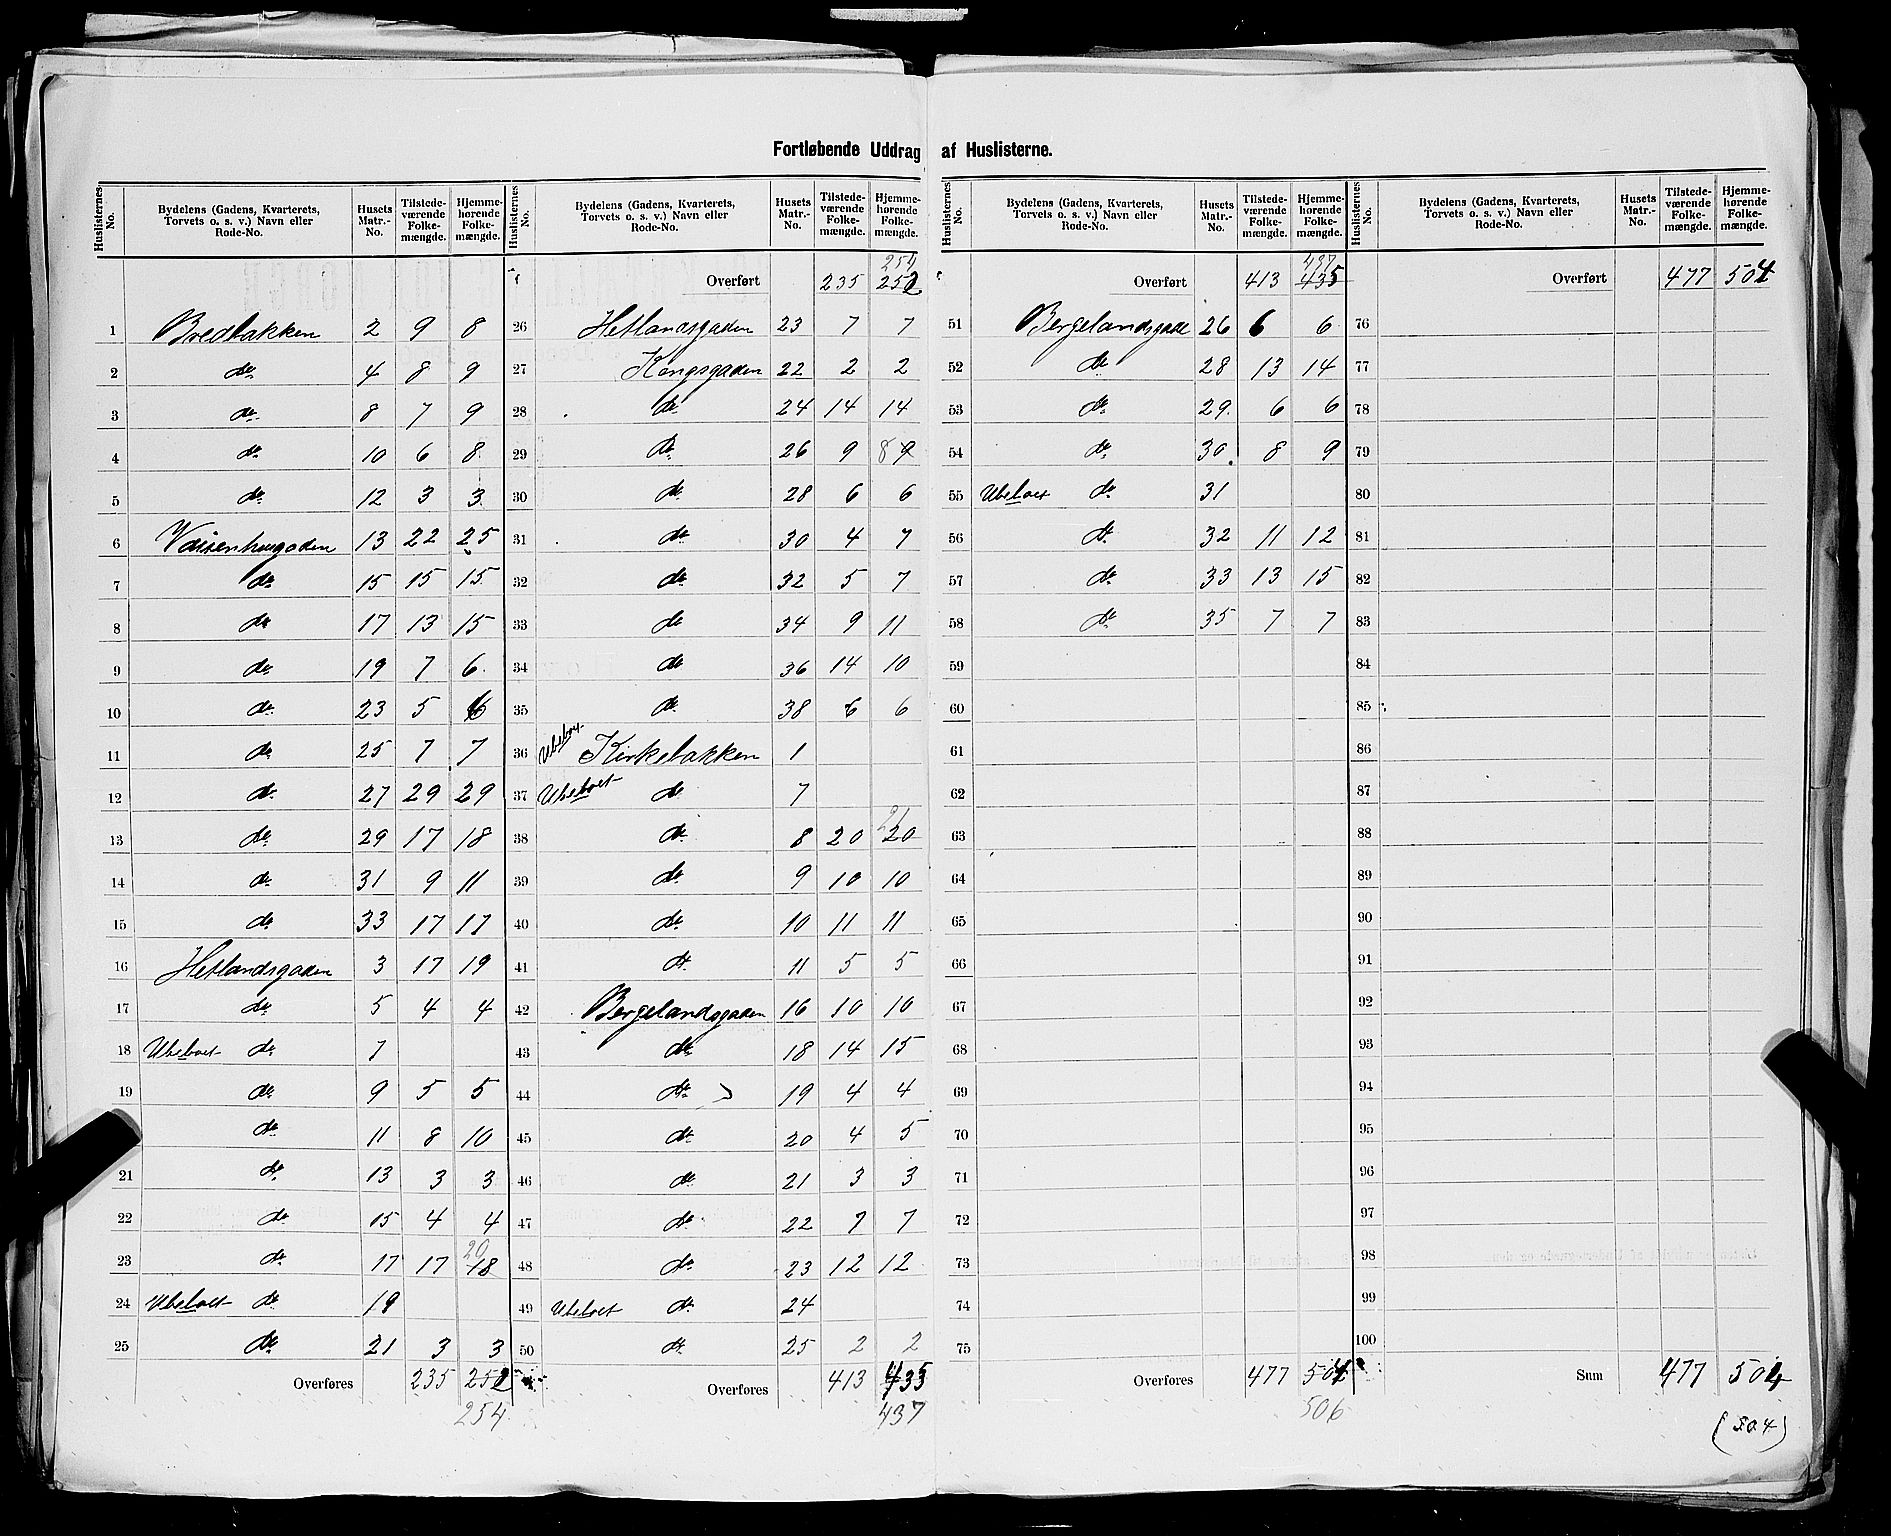 Fortløbende Uddrag af Huslisterne.
Huslisternes No. | Bydelens (Gadens, Kvarterets, Torvets o. s. v.) Navn eller Rode-No. | Husets Matr.-No. | Tilstedeværende Folkemængde. | Hjemmehørende Folkemængde.
1 Bredbakken 2 9 8
2 do. 4 8 9
3 do. 8 7 9
4 do. 10 6 8
5 do. 12 3 3
6 Vaisenhusgaden 13 22 25
7 do. 15 15 15
8 do. 17 13 15
9 do. 19 7 6
10 do. 23 5 6
11 do. 25 7 7
12 do. 27 29 29
13 do. 29 17 18
14 do. 31 9 11
15 do. 33 17 17
16 Hetlandsgaden 3 17 19
17 do. 5 4 4
18 Ubeboet do. 7
19 do. 9 5 5
do. 11 8 10
21 do. 13 3 3
22 do. 15 4 4
23 do. 17 17 18 20
24 Ubeboet do. 19
25 do. 21 3 3
Overføres 235 252
254
Huslisternes No. | Bydelens (Gadens, Kvarterets, Torvets o. s. v.) Navn eller Rode-No. | Husets Matr.-No. | Tilstedeværende Folkemængde. | Hjemmehørende Folkemængde.
254
Overført 235 252
26 Hetlandsgaden 23 7 7
27 Kongsgaden 22 2 2
28 do. 24 14 14
29 do. 26 9 8 9
30 do. 28 6 6
31 do. 30 4 7
32 do. 32 5 7
33 do. 34 9 11
34 do. 36 14 10
35 do. 38 6 6
36 Ubeboet Kirkebakken 1
37 Ubeboet do. 7
38 do. 8 20 21 20
39 do. 9 10 10
40 do. 10 11 11
41 do. 11 5 5
42 Bergelandsgaden 16 10 10
43 do. 18 14 15
44 do. 19 4 4
45 do. 20 4 5
46 do. 21 3 3
47 do. 22 7 7
48 do. 23 12 12
49 Ubeboet do. 24
50 do. 25 2 2
Overføres 413 435
437
Huslisternes No. | Bydelens (Gadens, Kvarterets, Torvets o. s. v.) Navn eller Rode-No. | Husets Matr.-No. | Tilstedeværende Folkemængde. | Hjemmehørende Folkemængde.
437
Overført 413 435
51 Bergelandsgade 26 6 6
52 do. 28 13 14
53 do. 29 6 6
54 do. 30 8 9
55 Ubeboet do. 31
56 do. 32 11 12
57 do. 33 13 15
58 do. 35 7 7
59
60
61
62
63
64
65
66
67
68
69
70
71
72
73
74
75
Overføres 477 504
506
Huslisternes No. | Bydelens (Gadens, Kvarterets, Torvets o. s. v.) Navn eller Rode-No. | Husets Matr.-No. | Tilstedeværende Folkemængde. | Hjemmehørende Folkemængde.
Overført 477 504
76
77
78
79
80
81
82
83
84
85
86
87
88
89
90
91
92
93
94
95
96
97
98
99
100
Sum 477 504
(504)